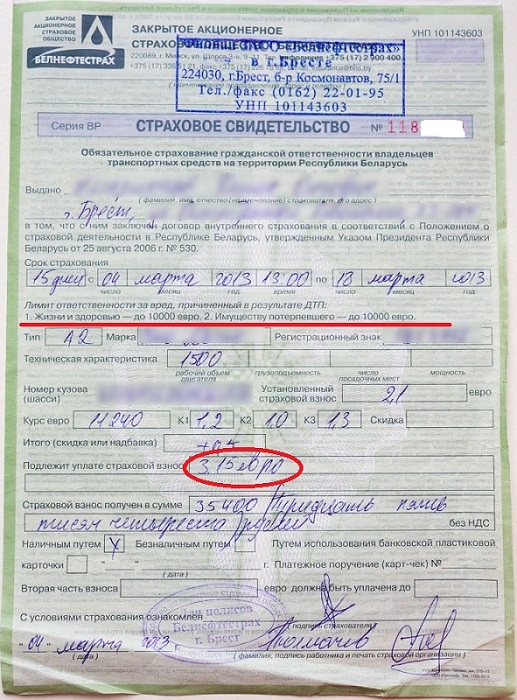 ЗАКРЫТОЕ
АКЦИОНЕРНОЕ
СТРАХОВОЕ
ОБЩЕСТВО
БЕЛНЕФТЕСТРАХ
ЗАКРЫТОЕ АКЦИОНЕРНОЕ
УНП 101143603
ЗАО «Белнефтестрах»
в г.Бресте
224030, г.Брест, б-р Космонавтов, 75/1
Тел./факс (0162) 22-01-95
УНП 101143603
Серия ВР СТРАХОВОЕ СВИДЕТЕЛЬСТВО № 118
Обязательное страхование гражданской ответственности владельцев
транспортных средств на территории Республики Беларусь
Выдано
(фамилия, имя, отчество (наименование) страхователя, его адрес)
г. Брест,
в том, что с ним заключен договор внутреннего страхования в соответствии с Положением о
страховой деятельности в Республике Беларусь, утвержденным Указом Президента Республики
Беларусь от 25 августа 2006 г. № 530.
Срок страхования
15 дней с 04 марта 2013 13:00 по 18 марта 2013
число месяц год час число месяц год
Лимит ответственности за вред, причиненный в результате ДТП:
1. Жизни и здоровью — до 10000 евро. 2. Имуществу потерпевшего — до 10000 евро.
Тип А2 Марка Регистрационный знак
Техническая характеристика 1500
рабочий объем двигателя грузоподъемность посадочных мест мощность
Номер кузова (шасси) Установленный страховой взнос 2,1 евро
Курс евро 14240 К1 1,2 К2 1,0 К3 1,3 Скидка
Итого (скидка или надбавка)
Подлежит уплате страховой взнос 3,15 евро
Страховой взнос получен в сумме 35400 Тридцать пять
тысяч четыреста рублей без НДС
Наличным путем X Безналичным путем Путем использования банковской пластиковой
карточки г. Платежное поручение (карт-чек) №
(дата)
Вторая часть взноса евро должна быть уплачена до
С условиями страхования ознакомлен
(подпись страхователя)
Для полисов
Белнефтестрах
г. Брест
"04" марта 2013.
(дата) (фамилия, подпись работника и печать страховой организации)